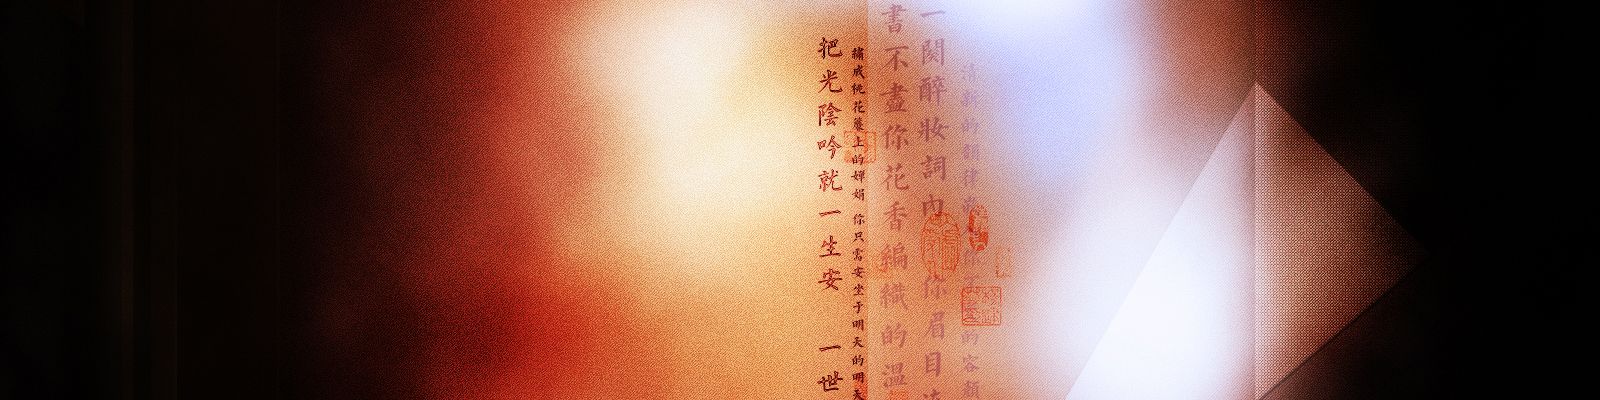 清新的韻律 的容顏
一闋醉妝詞內 你眉目
書不盡你花香編織的溫
繡成桃花箋上的嬋娟 你只需安坐于明天的明天
把光陰吟就一生安 一世